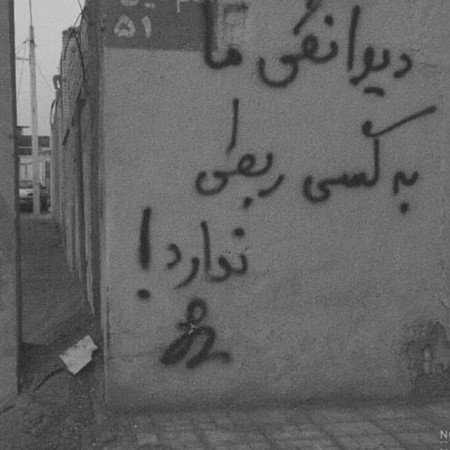 ۵۱
دیوانگی ما
به کسی ربطی
ندارد!